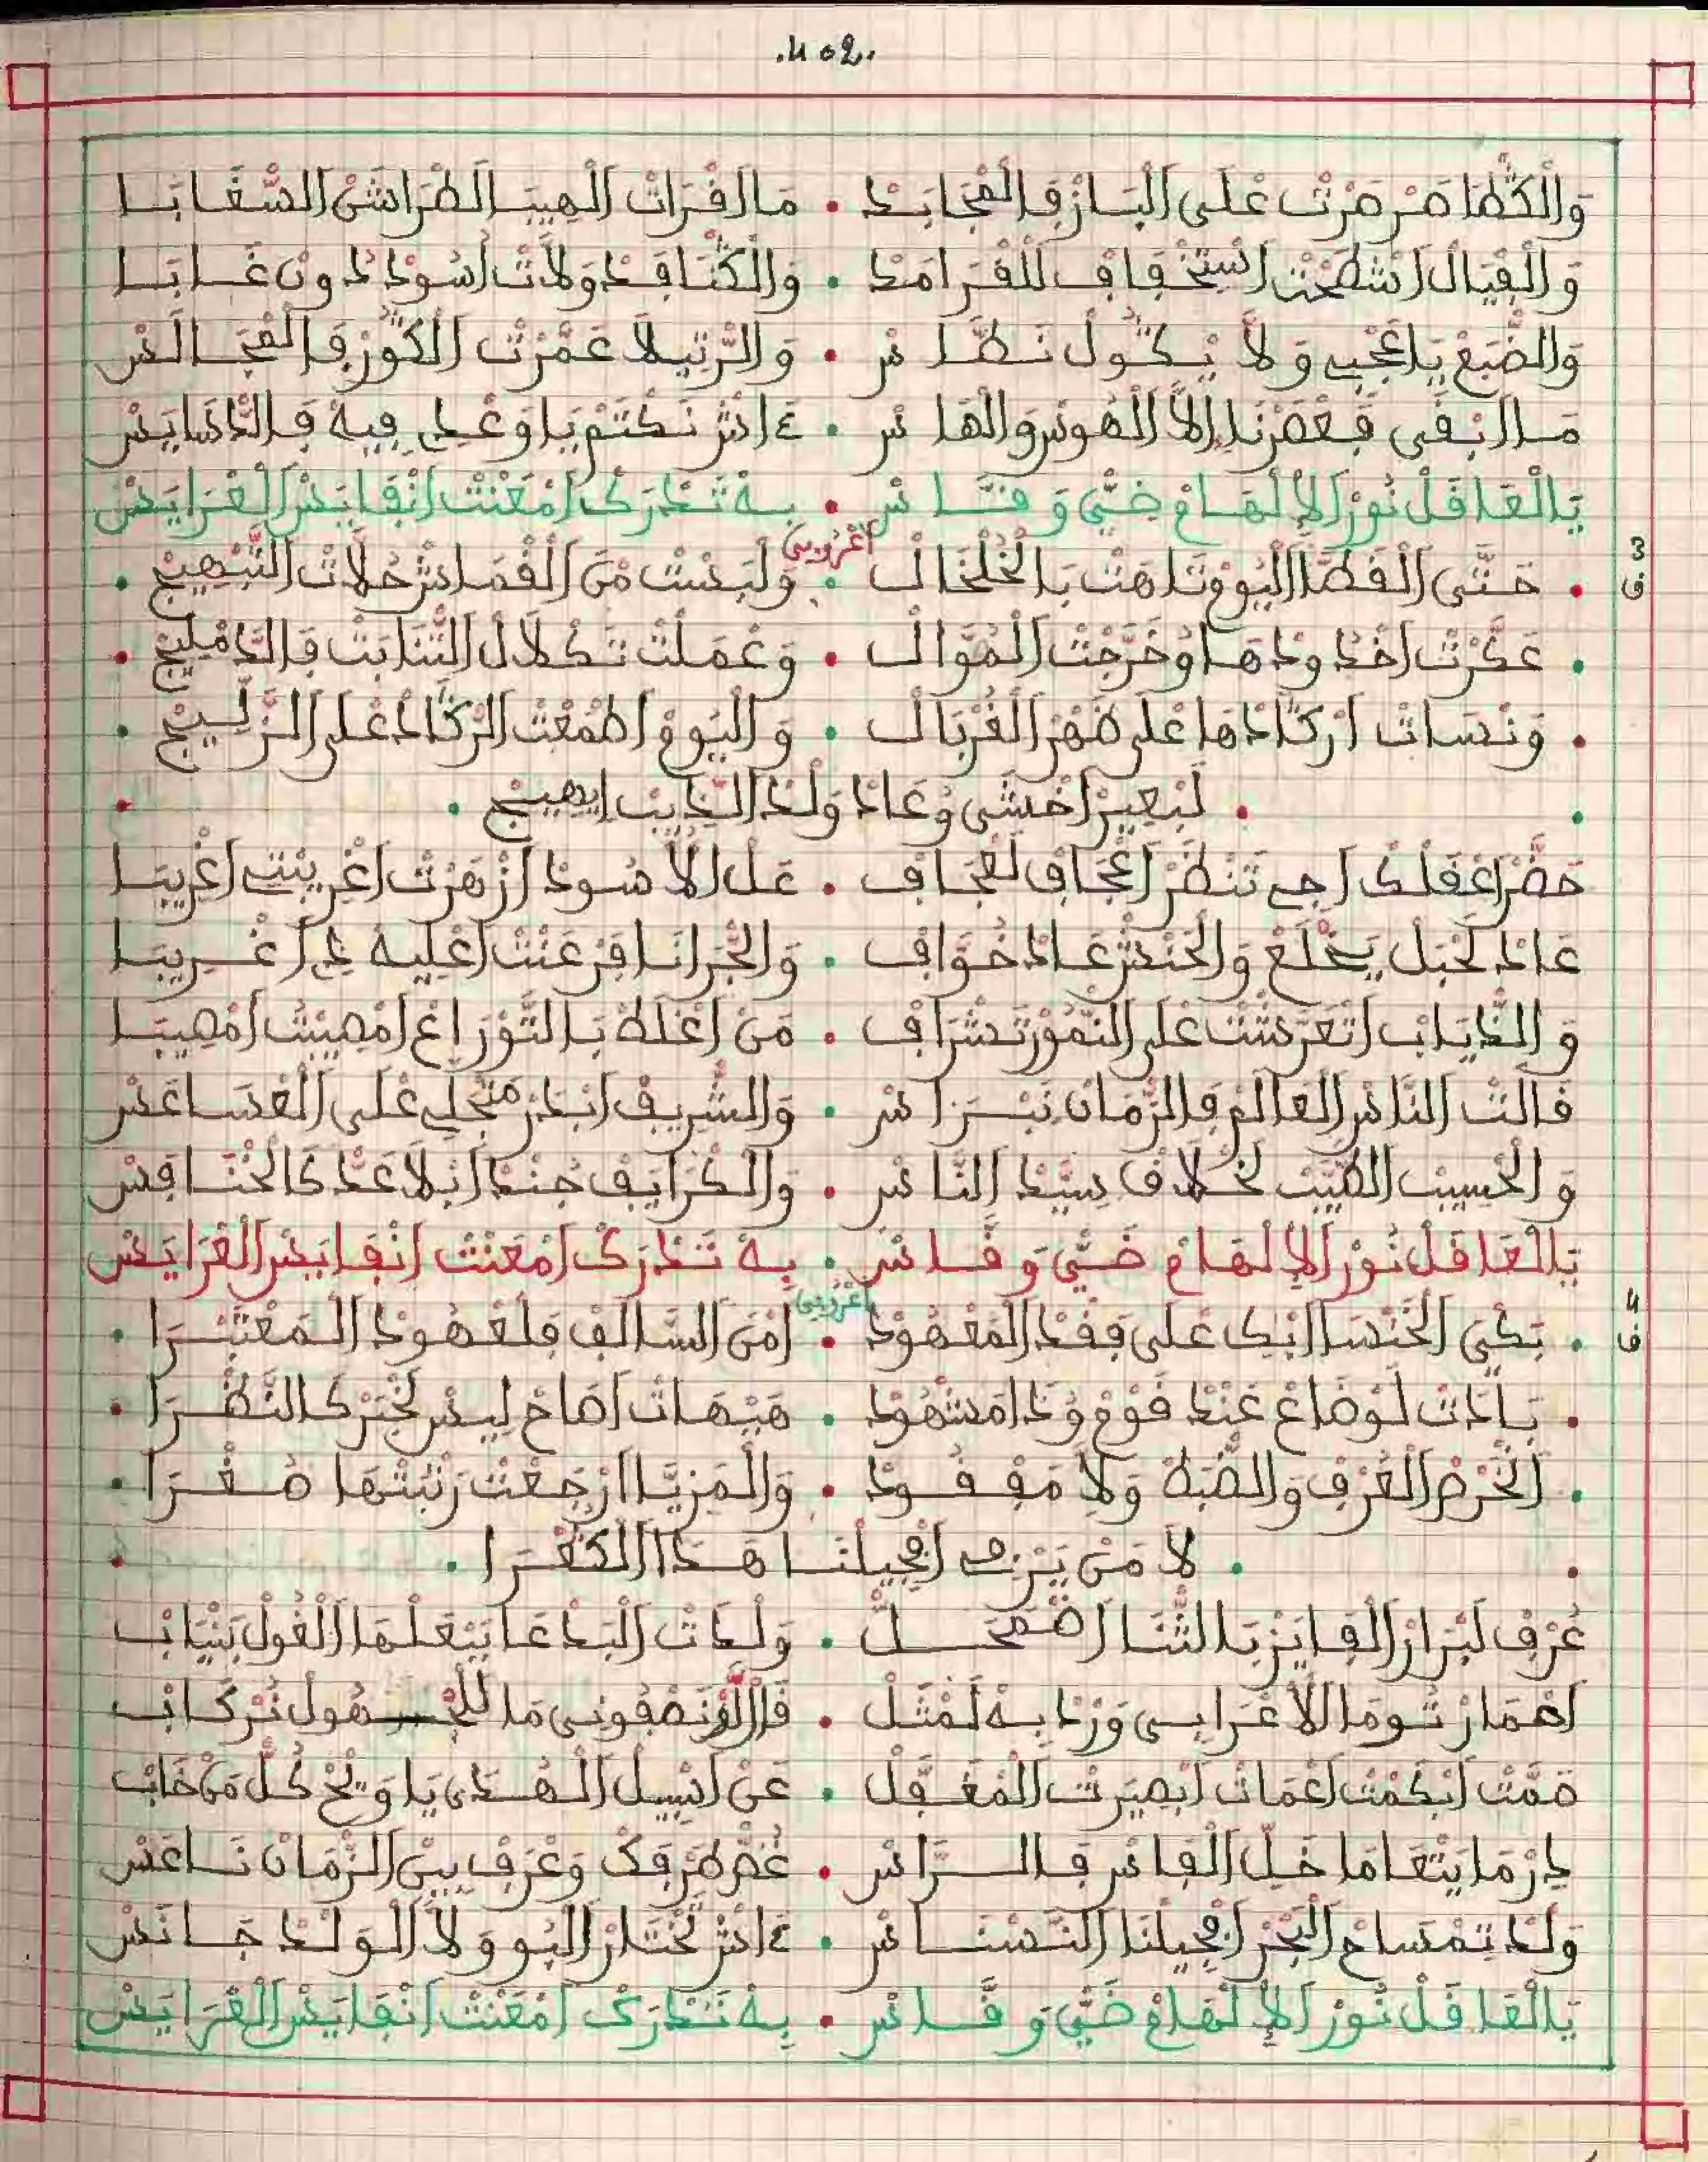 .402.
وَالْكَطَا صَرْصَرْتْ عْلَى الْبَازْ فَالْمْجَابَدْ • مَا الَفْرَاتْ الْهِيبَ الطْرَاشَنْ السّْغَابَا
وَالْفْيَالْ اشْطَحْتْ اسْتِخْفَافْ لَلْقْرَامَدْ • وَالْكْنَافَدْ وَلَاتْ اسُودْ دُونْ غَابَا
وَالضّْبَعْ يَاعْجْبِي وَلَا يْكُولْ نَطَّاسْ • وَالرّْتِيلَا عَمْرَتْ الْكُورْ فَالْمْجَالَسْ
مَا ابْقَى فْعَصْرْنَا إِلَّا الْهُوسْ وَالْهَاسْ • ءَاشْ نَكْتَمْ يَا وَعْدِي فِيهْ فَالدّْسَايَسْ
يَا الْعَاقَلْ نُورْ الِالْهَامْ ضَيّْ وَقَّاسْ • بِهْ تَدْرَكْ امْعَنْتْ انْفَايَسْ الْعْرَايَسْ
اعْرُوبِي
3
ق
• حَتَّى الْقَطَّا الْيُومْ تَاهَتْ بَالْخَلْخَالْ • وَلَبْسَتْ مَنْ الْقْمَاشْ حُلَّاتْ التَّبْهِيجْ •
• عَكْرَتْ اخْدُودْهَا وُخَرْجَتْ الْمُوَّالْ • وَعْمَلْتْ تَكْلَالْ التّْنَابَتْ فَالدَّمْلِيجْ •
• وَنْسَاتْ ارْكَادْهَا عْلَى ظْهَرْ الْغُرْبَالْ • وَالْيُومْ اطْمْعَتْ الرّْكَادْ عْلَى الزَّلِّيجْ •
• لَبْعِيرْ اخْشَى وُعَادْ وَلْدْ الذِّيبْ ايْهِيجْ •
حَضَّرْ اعْقَلْكْ اجِي تَنْظَرْ اعْجَافْ لَعْجَافْ • عَلْ الَاسُودْ ازْهَرْتْ اغْرِيبْتِي اغْرِيبَا
عَادْ لَحْبَلْ يَخْلَعْ وَالْحْنَشْ عَادْ خَوَّافْ • وَالْجْرَانَا فَرْعَنْتْ اعْلِيهْ دِي اغْرِيبَا
وَالذّْيَابْ اتْعَرَّشْتْ عْلَى النّْمُورْ تَشْرَافْ • مَنْ اغْلَطْ بَالتُّورَاعْ امْصِيبْتْ امْصِيبَا
قَالَتْ النَّاسْ الْعَالَمْ فَالزّْمَانْ نَبْرَاسْ • وَالشّْرِيفْ ابْدَرْ مَنْجْلِي عْلَى الْعْسَاعَسْ
وَالْحْسِيبْ الطَّيَّبْ لَخْلَاقْ سِيَّدْ النَّاسْ • وَالْكْرَايَفْ جُنْدْ ابْلَا عَدّْ كَالْخْنَافَسْ
يَا الْعَاقَلْ نُورْ الِالْهَامْ ضَيّْ وَقَّاسْ • بِهْ تَدْرَكْ امْعَنْتْ انْفَايَسْ الْعْرَايَسْ
اعْرُوبِي
4
ق
• تَبْكِي الْخَنْسَا ابْكِي عْلَى فَقْدْ الْمَعْهُودْ • امْنْ السَّالَفْ فَلَعْهُودْ الْمَعْتَبْرَا •
• بَادَتْ لَوْضَاعْ عَنْدْ قُومْ وُدَا مَشْهُودْ • هَيْهَاتْ اصَاحْ لِيسْ لَخْبَرْ كَالنَّظْرَا •
• الْخْرَصْ الْعُرْفْ وَالضَّبْطْ وَلَا مَفْقُودْ • وَالْمَزِيَّا ارْجَعْتْ رَتْبَتْهَا صُغْرَا •
• لَا مَنْ يَرْتِي افْجِيلْنَا هَذَا الْكُفْرَا •
عُرْفْ لَبْرَارْ الْفَايَزْ بَالثّْنَا اضْمَحَلّْ • وَلْدَاتْ الْبَدْعَا بَبْعَلْهَا الْغُولْ بَنْيَابْ
احْمَارْ تُومَا الْاعْرَابِي وَرْدَا بِهْ لَمْثَلْ • قَالْ لُو نَصْفُونِي مَا لَلْجْهُولْ نَرْكَابْ
صَمَّتْ ابْكْمَتْ اعْمَاتْ ابْصِيرْتْ الْمْغَفَّلْ • عَنْ اسْبِيلْ الْهْدَى يَا وَيْحْ كُلّْ مَنْ خَابْ
دِرْ مَا يَتْعَامَا خَلّْ الْفَاسْ فَالرَّاسْ • غُضّْ طَرْفَكْ وَعْرَفْ بِينْ الزّْمَانْ نَاعَسْ
وَلْدْ تَمْسَاحْ الْبْحَرْ افْجِيلْنَا النَّسْنَاسْ • ءَاشْ تَخْتَارْ الْبُو وَلَا الْوَلْدْ جَانَسْ
يَا الْعَاقَلْ نُورْ الِالْهَامْ ضَيّْ وَقَّاسْ • بِهْ تَدْرَكْ امْعَنْتْ انْفَايَسْ الْعْرَايَسْ